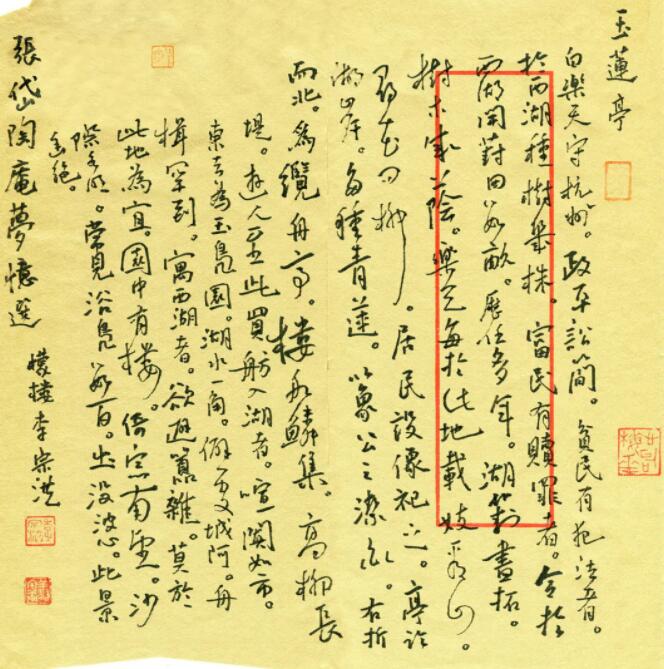 玉蓮亭
白樂天守杭州。政平訟簡。貧民有犯法者。
於西湖種樹幾株。富民有贖罪者。令於
西湖開葑田數畝。歷任多年。湖葑盡拓。
樹木成蔭。樂天每於此地載妓看山。
尋花問柳。居民設像祀之。亭臨
湖岸。多種青蓮。以象公之潔白。右折
而北。為纜舟亭。樓船鱗集。高柳長
堤。遊人至此買舫入湖者。喧闐如市。
東去為玉鳧園。湖水一角。僻處城阿。舟
楫罕到。寓西湖者。欲避囂雜。莫於
此地為宜。園中有樓。倚窗南望。沙
際水明。常見浴鳧數百。出沒波心。此景
幽絕。
張岱陶庵夢憶選
樓李宗洪